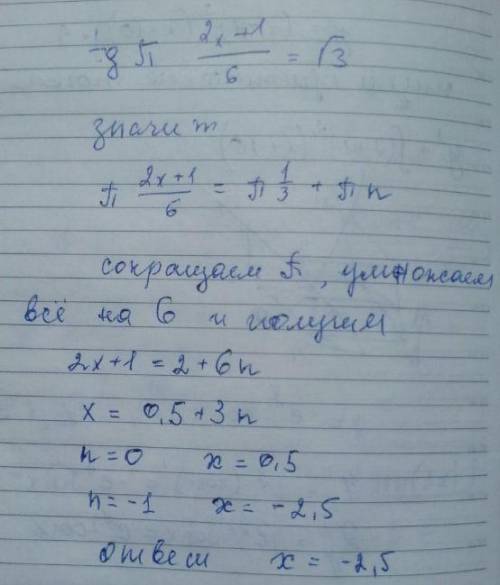 tg π (2x+1)/6 = √3
значит
π (2x+1)/6 = π 1/3 + π n
сокращаем π, умножаем
всё на 6 и получим
2x+1 = 2+6n
x = 0,5+3n
n=0 x=0,5
n=-1 x=-2,5
ответ x=-2,5